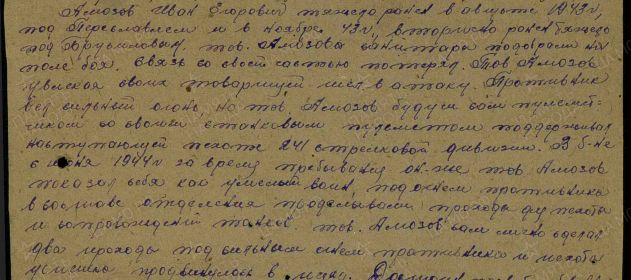 Амозов Иван Егорович тяжело ранен в августе 1943 г,
под Переславлем и в ноябре 43 г, вторично ранен тяжело
под Брусиловым, тов. Амозова санитары подобрали на
поле боя. Связь со своей частью потерял. Тов Амозов
увлекая своих товарищей шел в атаку. Противник
вел сильный огонь, но тов. Амозов будучи сам пулемет-
чиком со своим станковым пулеметом поддерживал
наступающей пехоте 241 стрелковой дивизии. В б-не
с июня 1944 г за время пребывания он-же тов Амозов
показал себя как умелый воин, под огнем противника
в составе отделения проделывали проходы для пехоты
и сопровождений танков тов. Амозов сам лично сделал
два прохода под сильным огнем противника и пехота
успешно продвинулась в